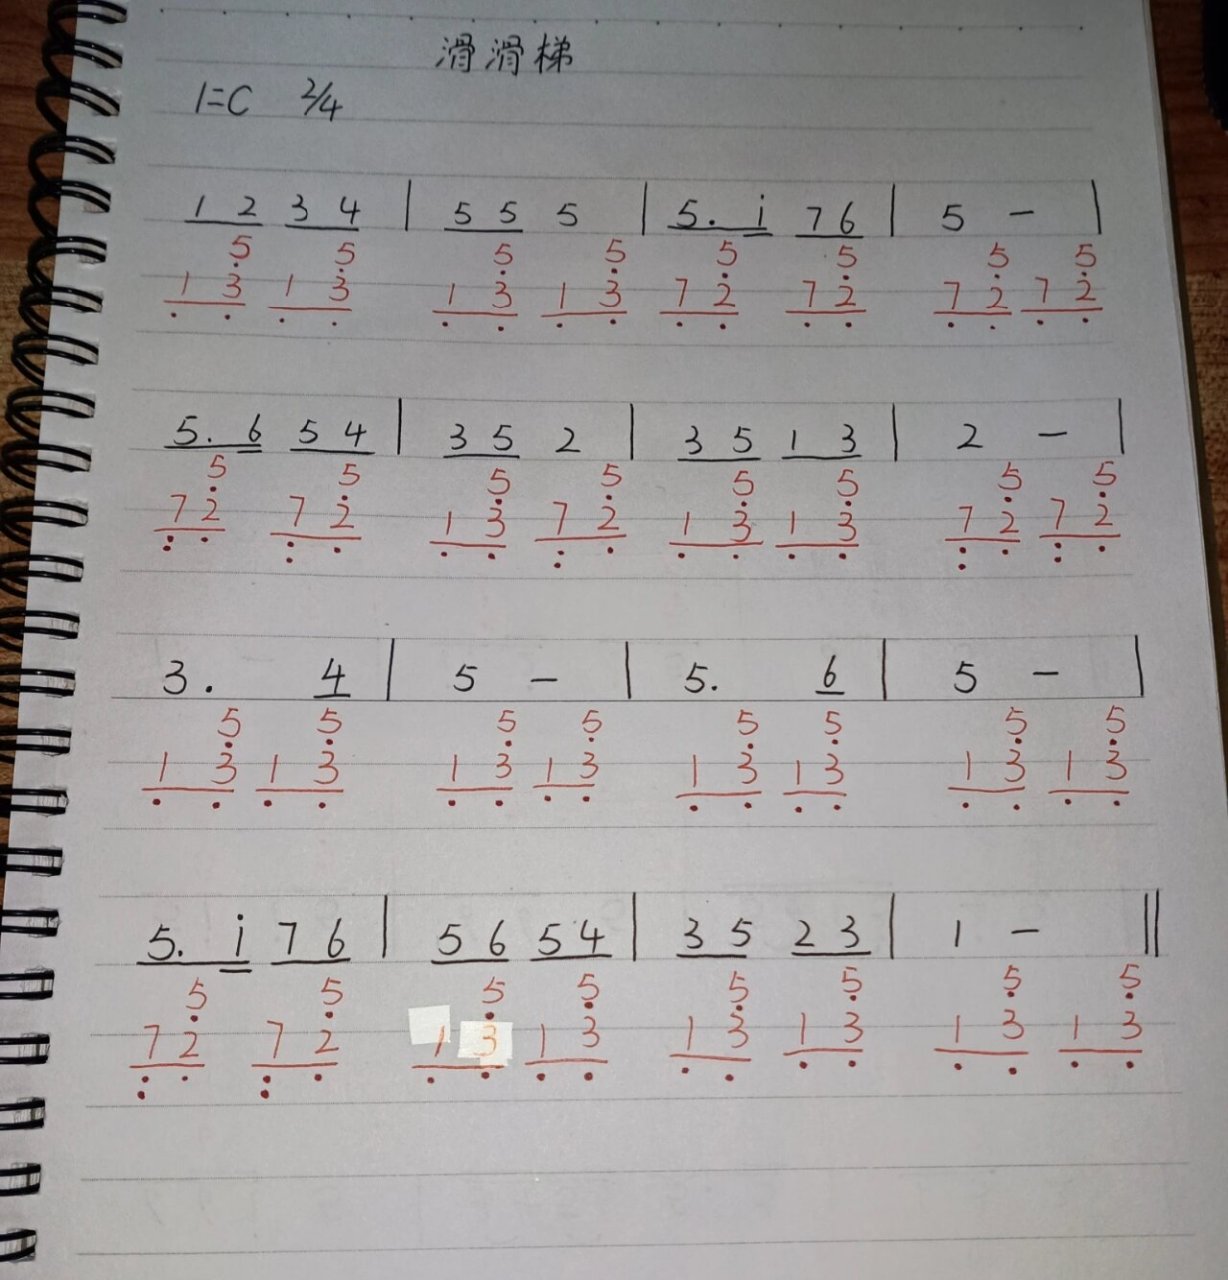 滑滑梯
1=C 2/4
1 2 3 4 | 5 5 5 | 5. i 7 6 | 5 - |
5 5 5 5 5 5 5 5
1 3 1 3 1 3 1 3 7 2 7 2 7 2 7 2
5. 6 5 4 | 3 5 2 | 3 5 1 3 | 2 - |
5 5 5 5 5 5 5 5
7 2 7 2 1 3 7 2 1 3 1 3 7 2 7 2
3. 4 | 5 - | 5. 6 | 5 - |
5 5 5 5 5 5 5 5
1 3 1 3 1 3 1 3 1 3 1 3 1 3 1 3
5. i 7 6 | 5 6 5 4 | 3 5 2 3 | 1 - ||
5 5 5 5 5 5 5 5
7 2 7 2 1 3 1 3 1 3 1 3 1 3 1 3